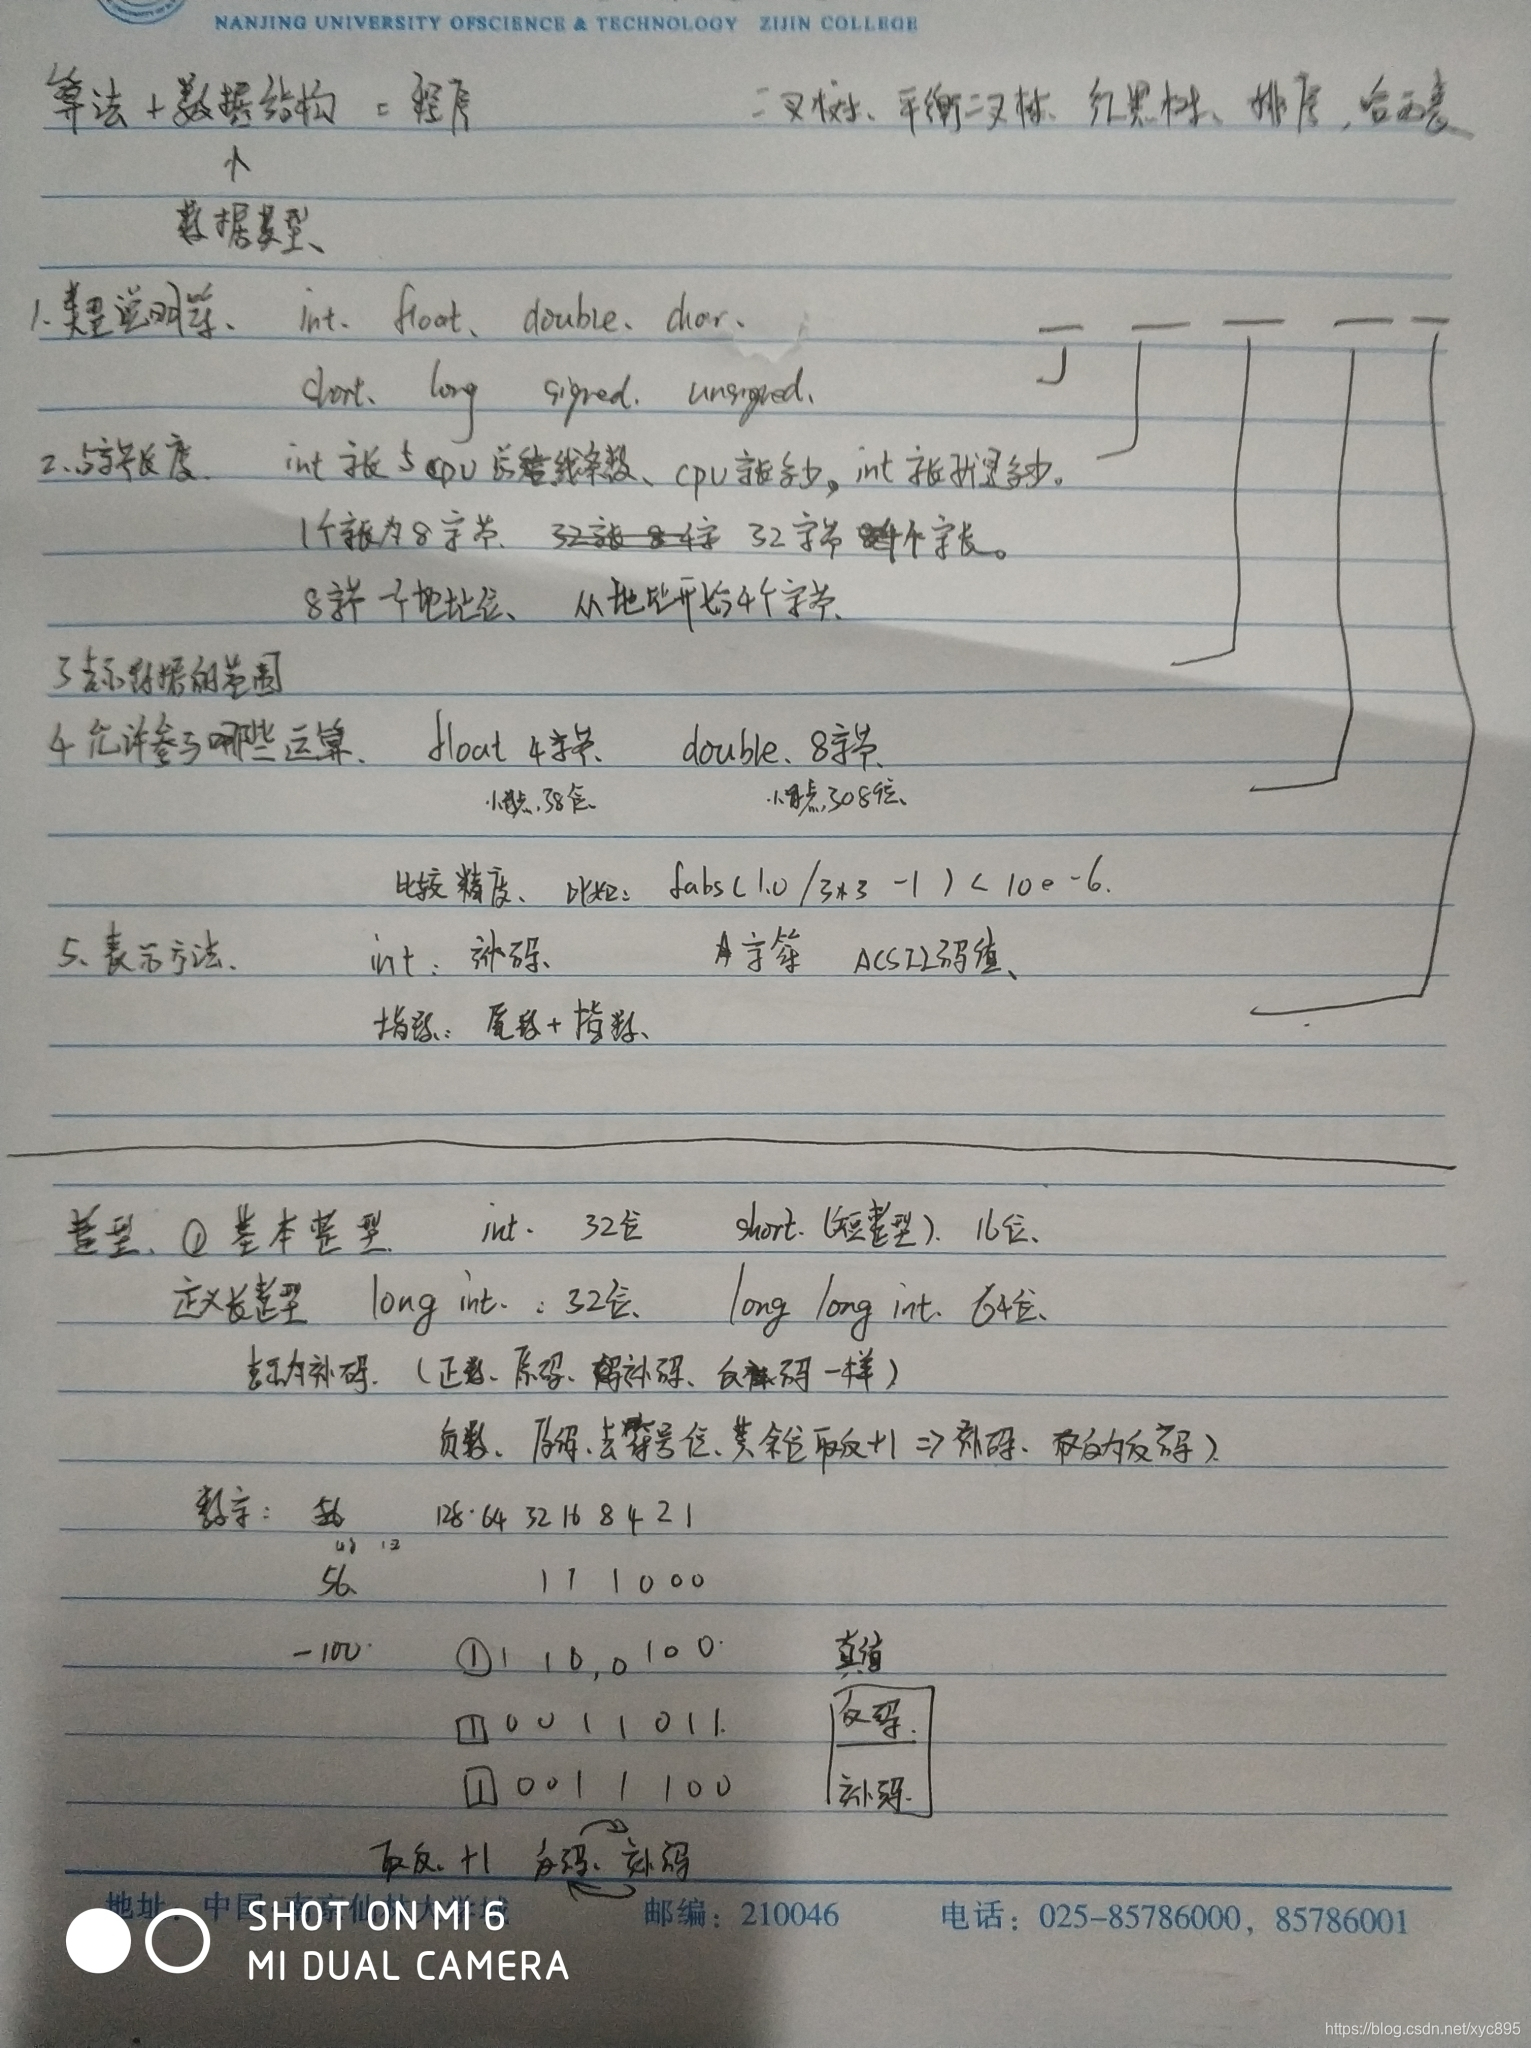 NANJING UNIVERSITY OFSCIENCE & TECHNOLOGY ZIJIN COLLEGE
算法 + 数据结构 = 程序 二叉树、平衡二叉树、红黑树、排序,哈希表
数据类型、
1. 类型说明符、 int、float、double、char、
short、long signed. unsigned.
2、字节长度 int 字长与CPU 总线条数、CPU字长多少。int 字长就是多少。
1个字长为8字节 32字节 4个字长。
8字节 一个地址位、 从地址开始4个字节、
3 表示数据的范围
4 允许参与哪些运算、 float 4字节、 double、8字节、
小数点、38位、 小数点、308位、
比较精度、 比如: fabs(1.0/3*3 -1) < 10e-6.
5、表示方法、 int: 补码、 字符 ACSII码值、
指数: 尾数+指数、
整型、① 基本整型 int. 32位 short.(短整型). 16位、
定义长整型 long int. : 32位、 long long int. 64位、
表示为补码.(正数、原码、补码、反码一样)
负数、原码、去符号位、其余位取反+1 => 补码、取反为反码)
数字: 56 128·64 32 16 8 4 2 1
48
56 1 1 1 0 0 0
-100 ① 1 1 0, 0 1 0 0 真值
1 0 0 1 1 0 1 1 反码.
1 0 0 1 1 1 0 0 补码.
取反、+1 反码、补码
地址: 中国·南京仙林大学城 邮编: 210046 电话: 025-85786000, 85786001
SHOT ON MI 6
MI DUAL CAMERA
https://blog.csdn.net/xyc895